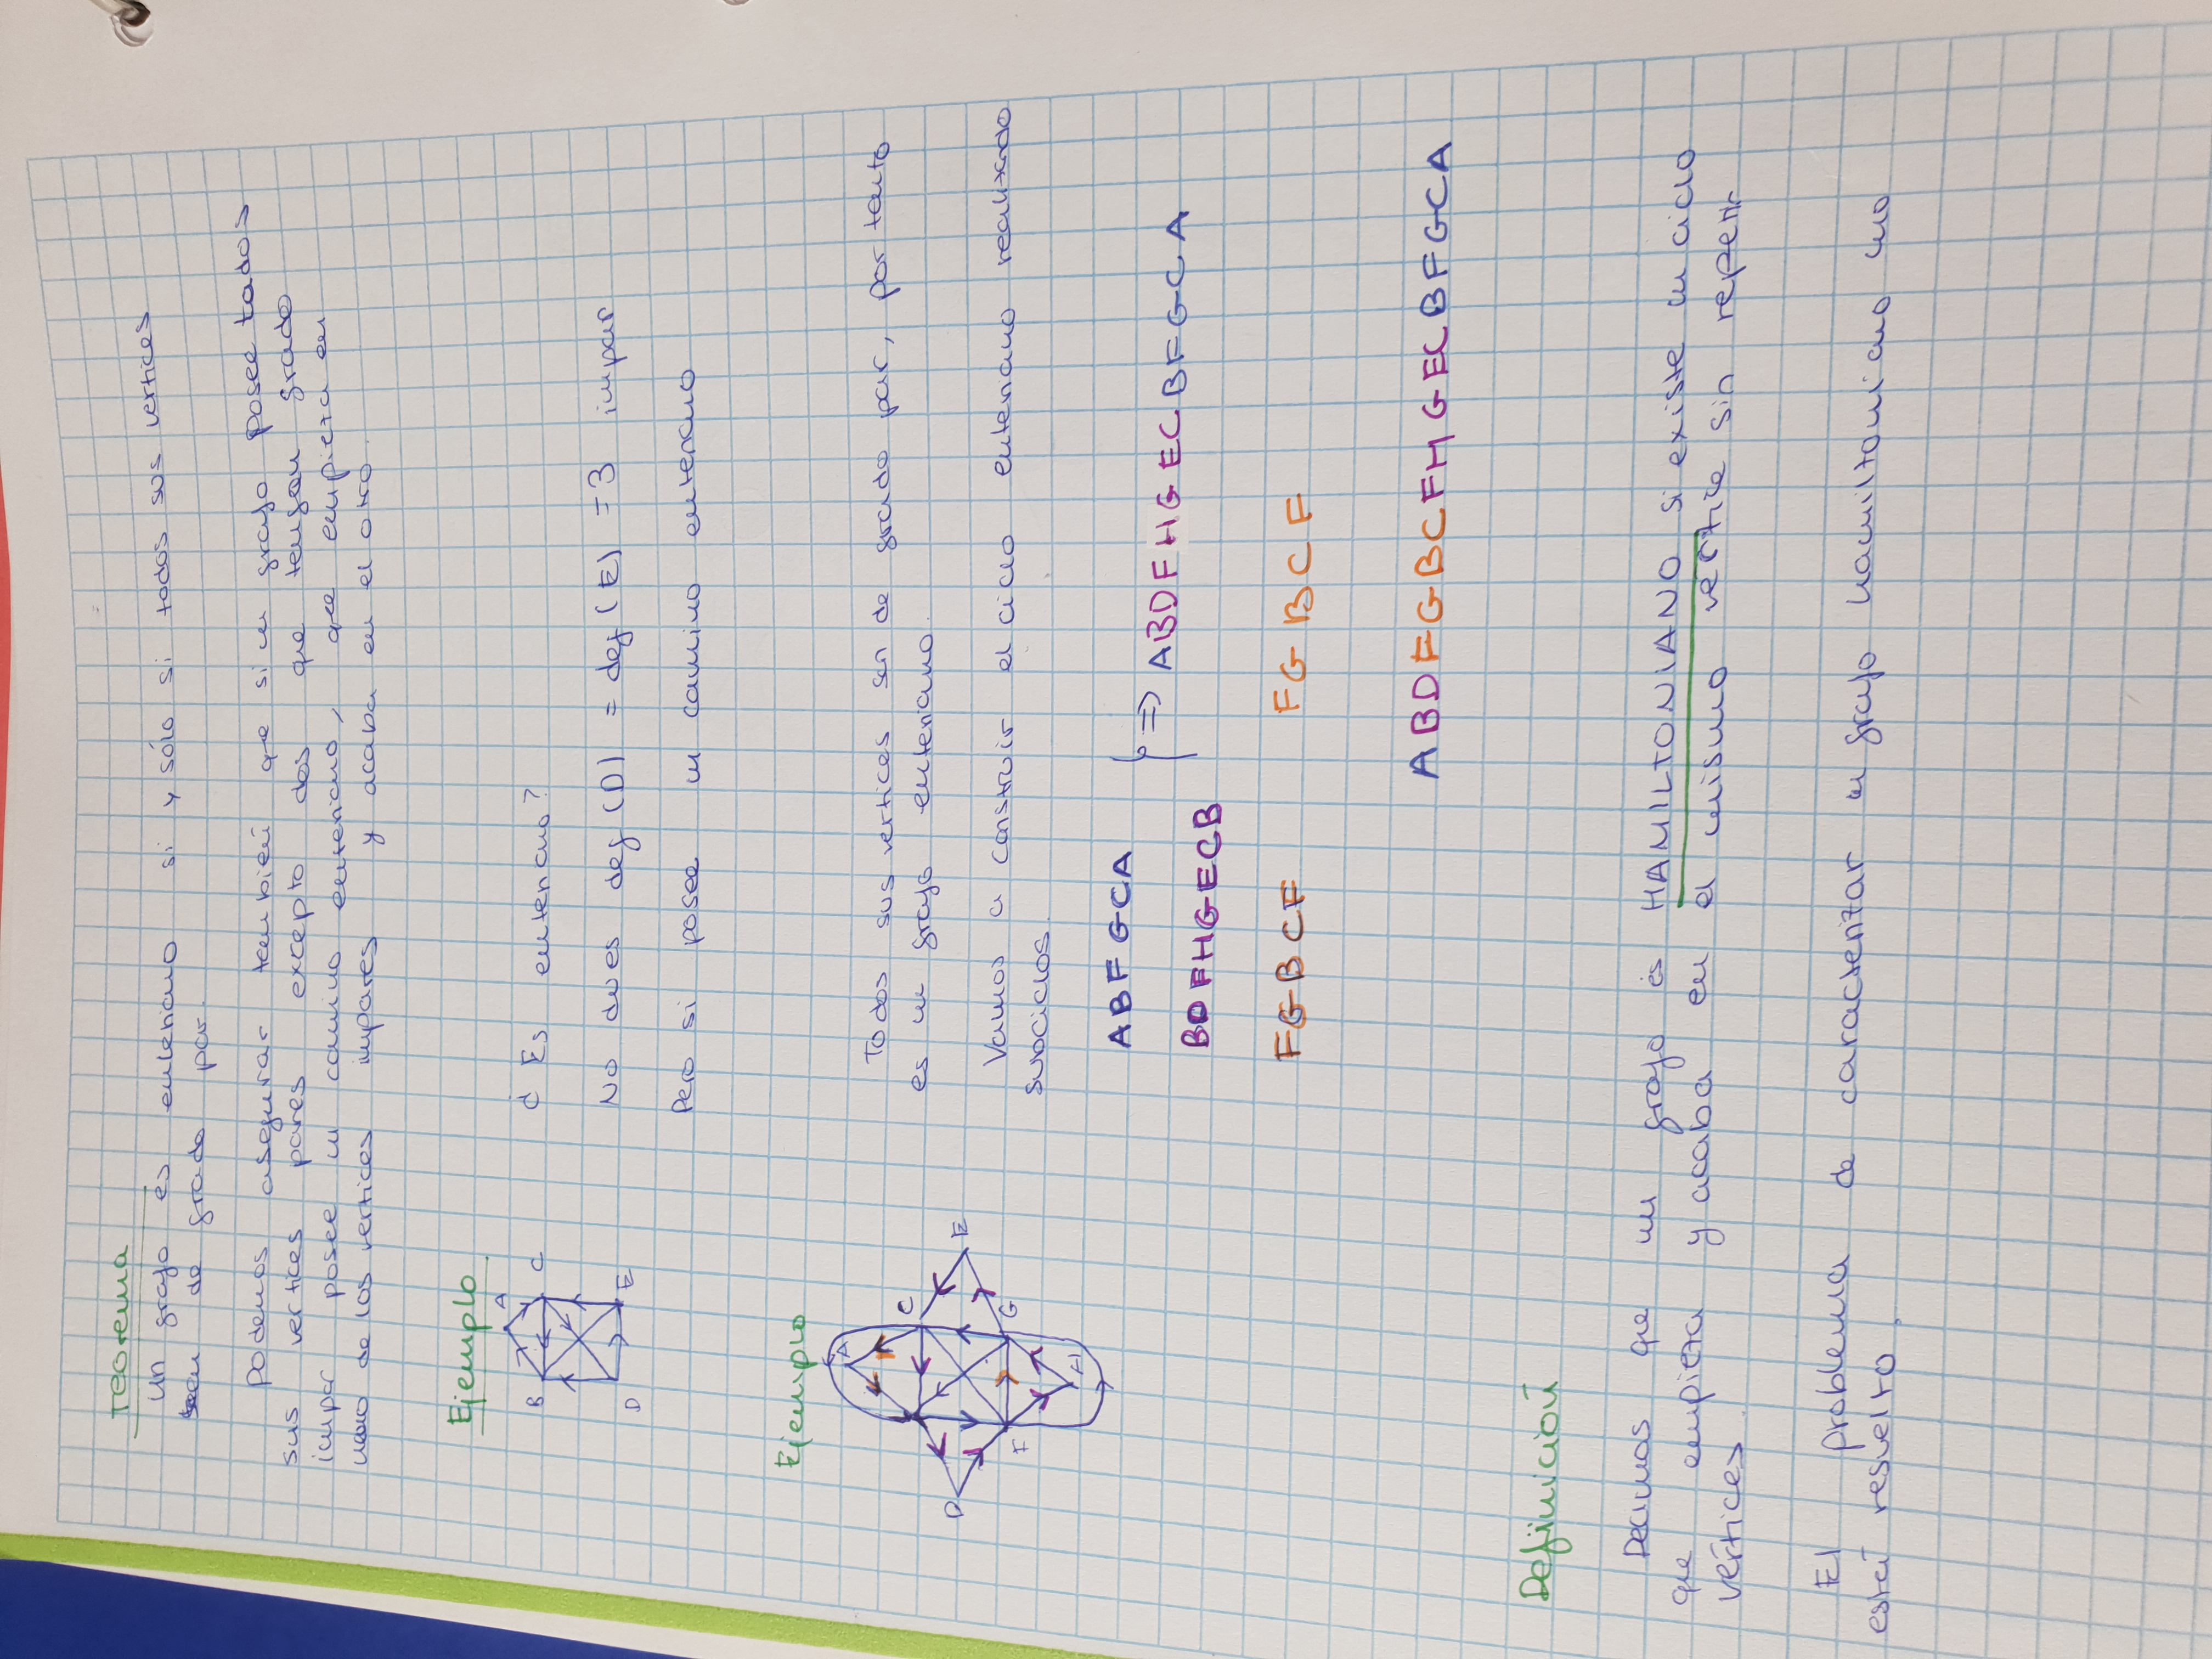 Teorema
Un grafo es euleriano si y sólo si todos sus vertices
sean de grado par.
Podemos asegurar también que si un grafo posee todos
sus vertices pares excepto dos que tengan grado
impar posee un camino euleriano, que empieza en
uno de los vertices impares y acaba en el otro.
Ejemplo
A
B
C
D
E
¿ Es euleriano?
No pues deg (D) = deg (E) = 3 impar
Pero si posee un camino euleriano
Ejemplo
A
C
D
E
F
G
H
Todos sus vertices son de grado par, por tanto
es un grafo euleriano.
Vamos a construir el ciclo euleriano realizando
subciclos.
ABFGCA
BDFHGECB
} => ABDFHGECBFGCA
FGBCF FGBCF
ABDFGBCFHGECBFGCA
Definición
Decimos que un grafo es HAMILTONIANO si existe un ciclo
que empieza y acaba en el mismo vértice sin repetir
vértices.
El problema de caracterizar un grafo hamiltoniano no
está resuelto.